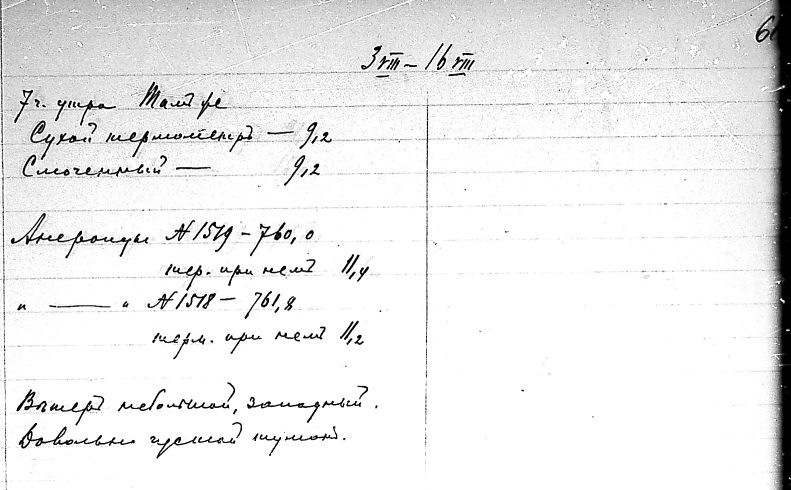 3 VIII – 16 VIII
7 ч. утра Тамъ же
Сухой термометръ — 9,2
Смоченный — 9,2
Анероиды № 1519 – 760,0
тер. при немъ 11,4
" — " № 1518 – 761,8
терм. при немъ 11,2
Вѣтеръ небольшой, западный.
Довольно густой туманъ.